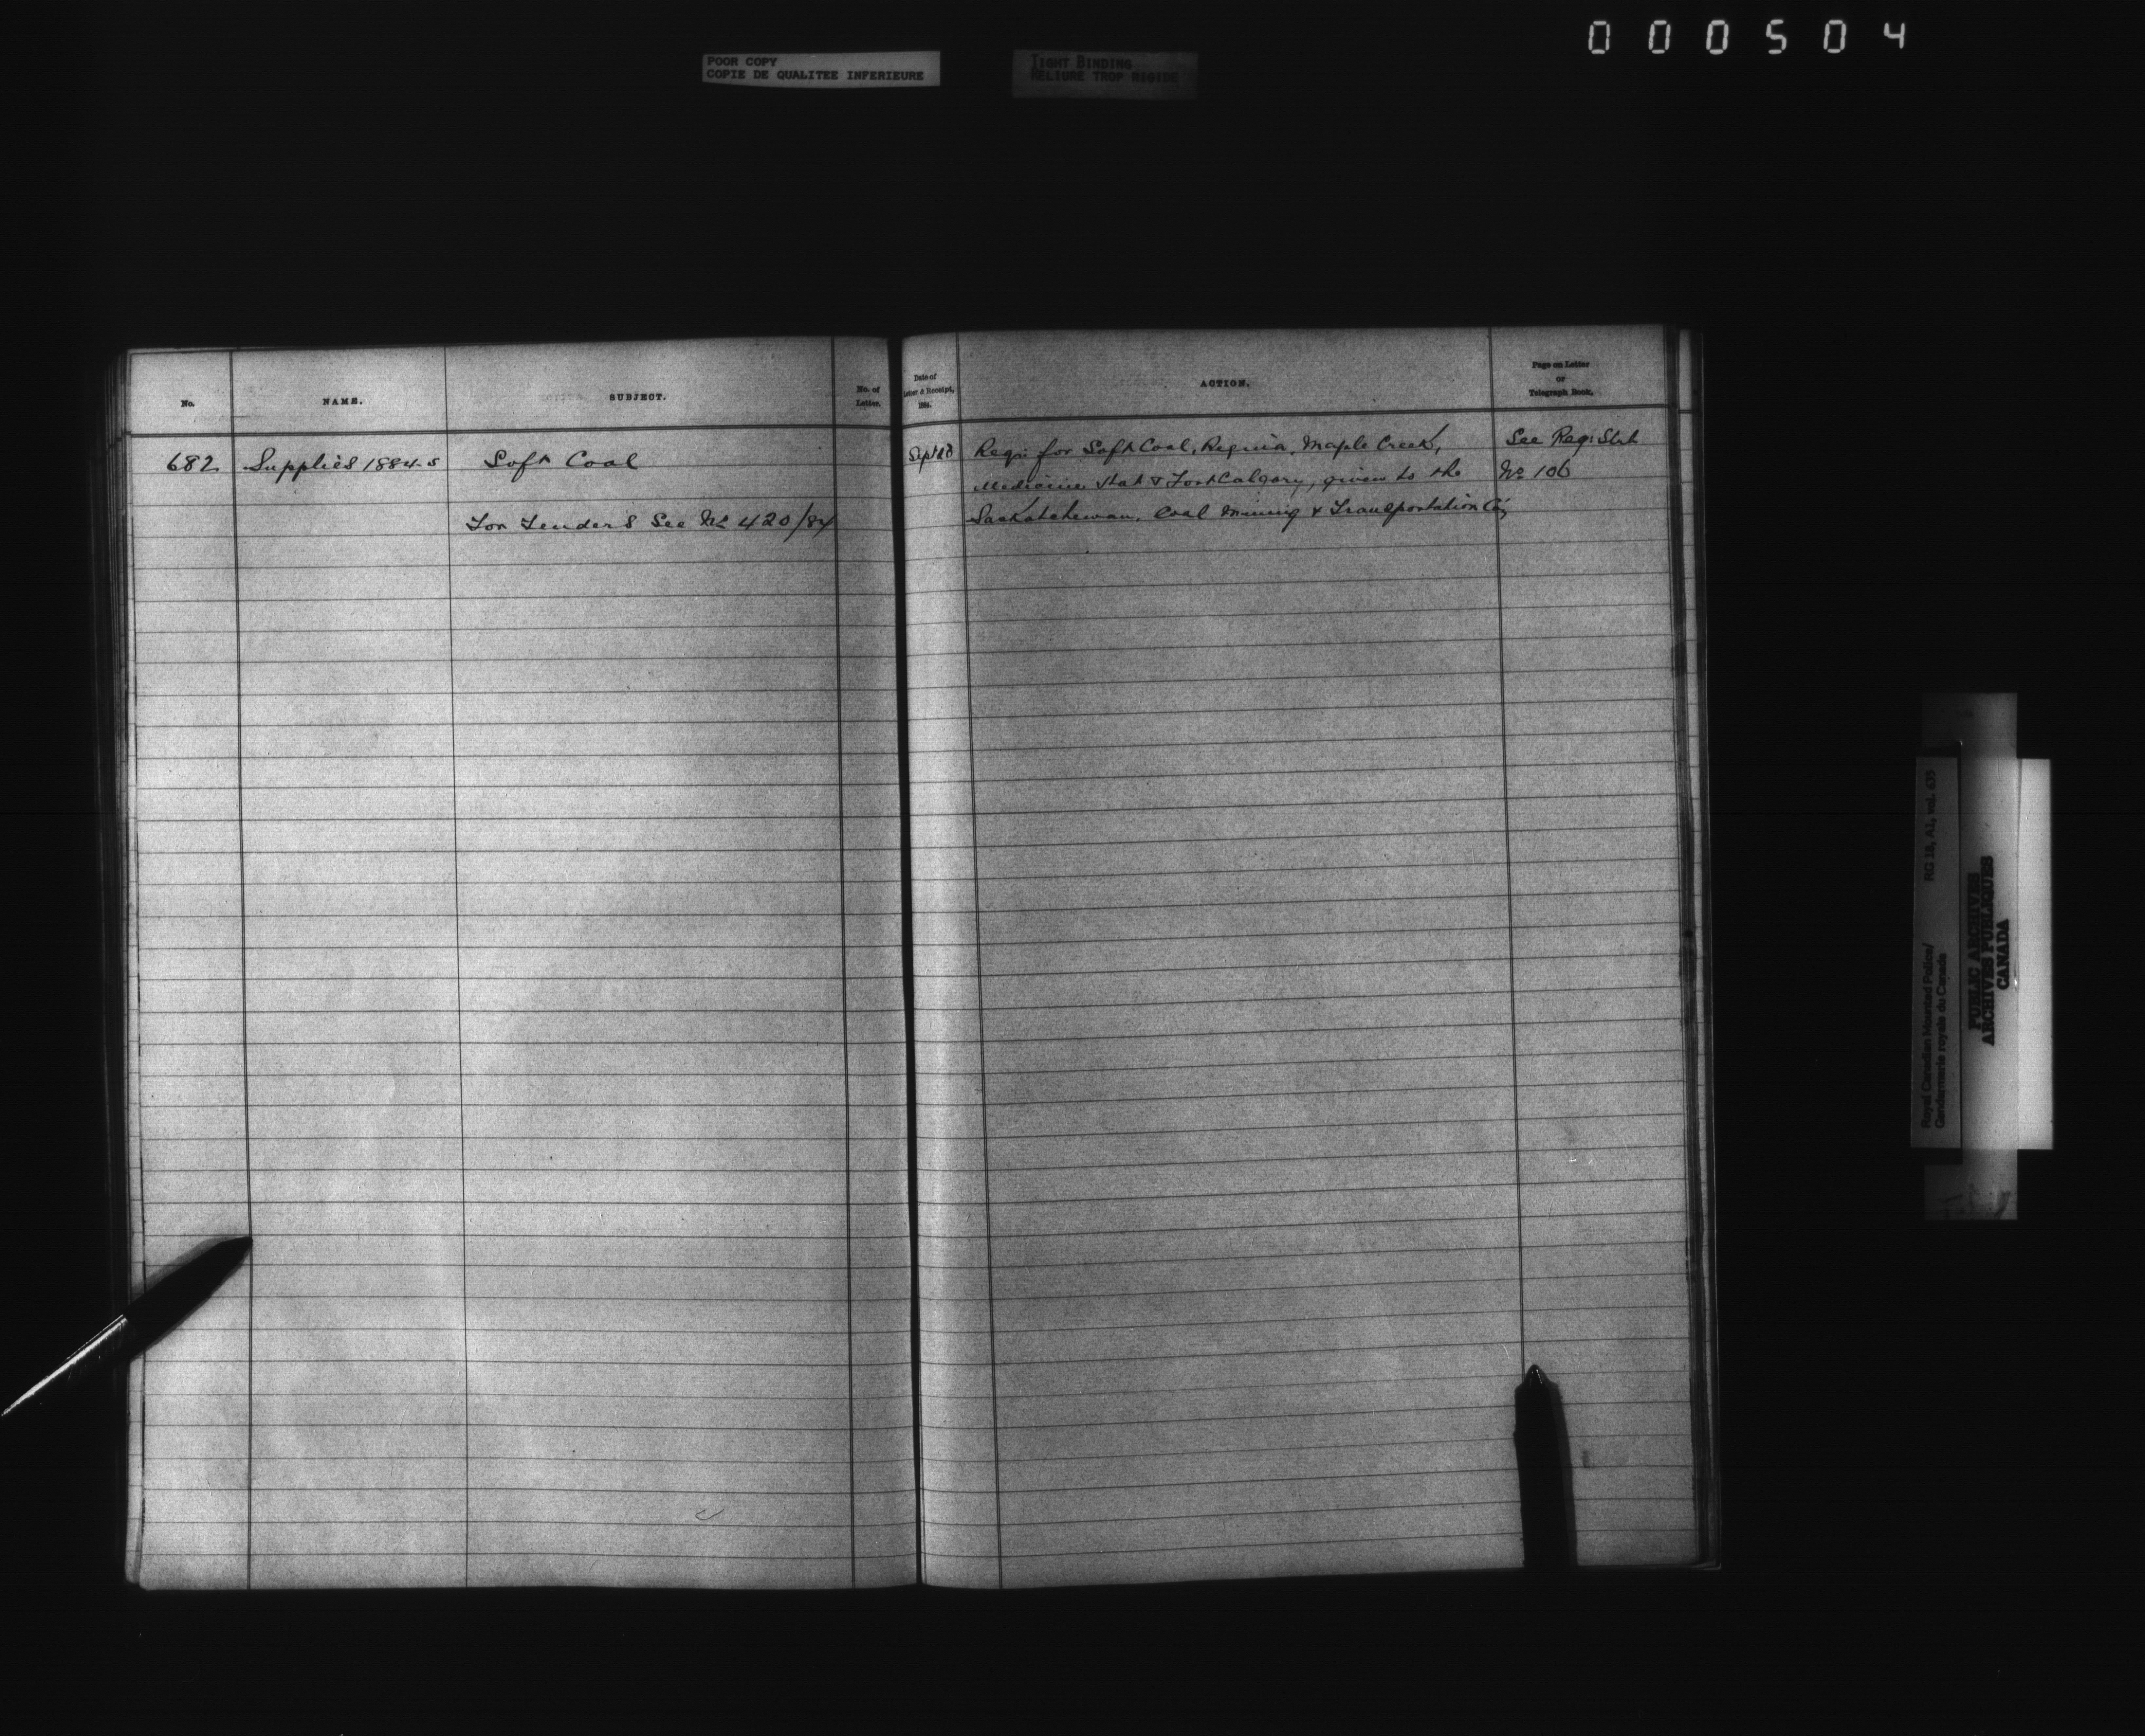 000504
POOR COPY
COPIE DE QUALITEE INFERIEURE
TIGHT BINDING
RELIURE TROP RIGIDE
No.
NAME.
SUBJECT.
No. of
Letter.
Date of
Letter & Receipt,
188 .
ACTION.
Page on Letter
or
Telegraph Book.
682
Supplies 1884-5
Soft Coal
For Tenders See No 420/84
Sept
Reqn: for Soft Coal, Regina, Maple Creek,
Medicine Hat & Fort Calgary, given to the
Saskatchewan, Coal Mining & Transportation Co,
See Reqn: Stub
No 106
Royal Canadian Mounted Police/
Gendarmerie royale du Canada
RG 18, A1, vol. 635
PUBLIC ARCHIVES
ARCHIVES PUBLIQUES
CANADA